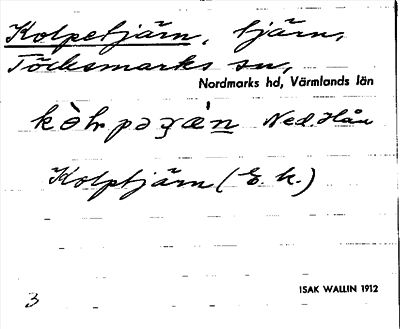 Kolpetjärn, tjärn,
Töcksmarks sn,
Nordmarks hd, Värmlands län
Ned. Hån
Kolptjärn (E. k.)
3
ISAK WALLIN 1912